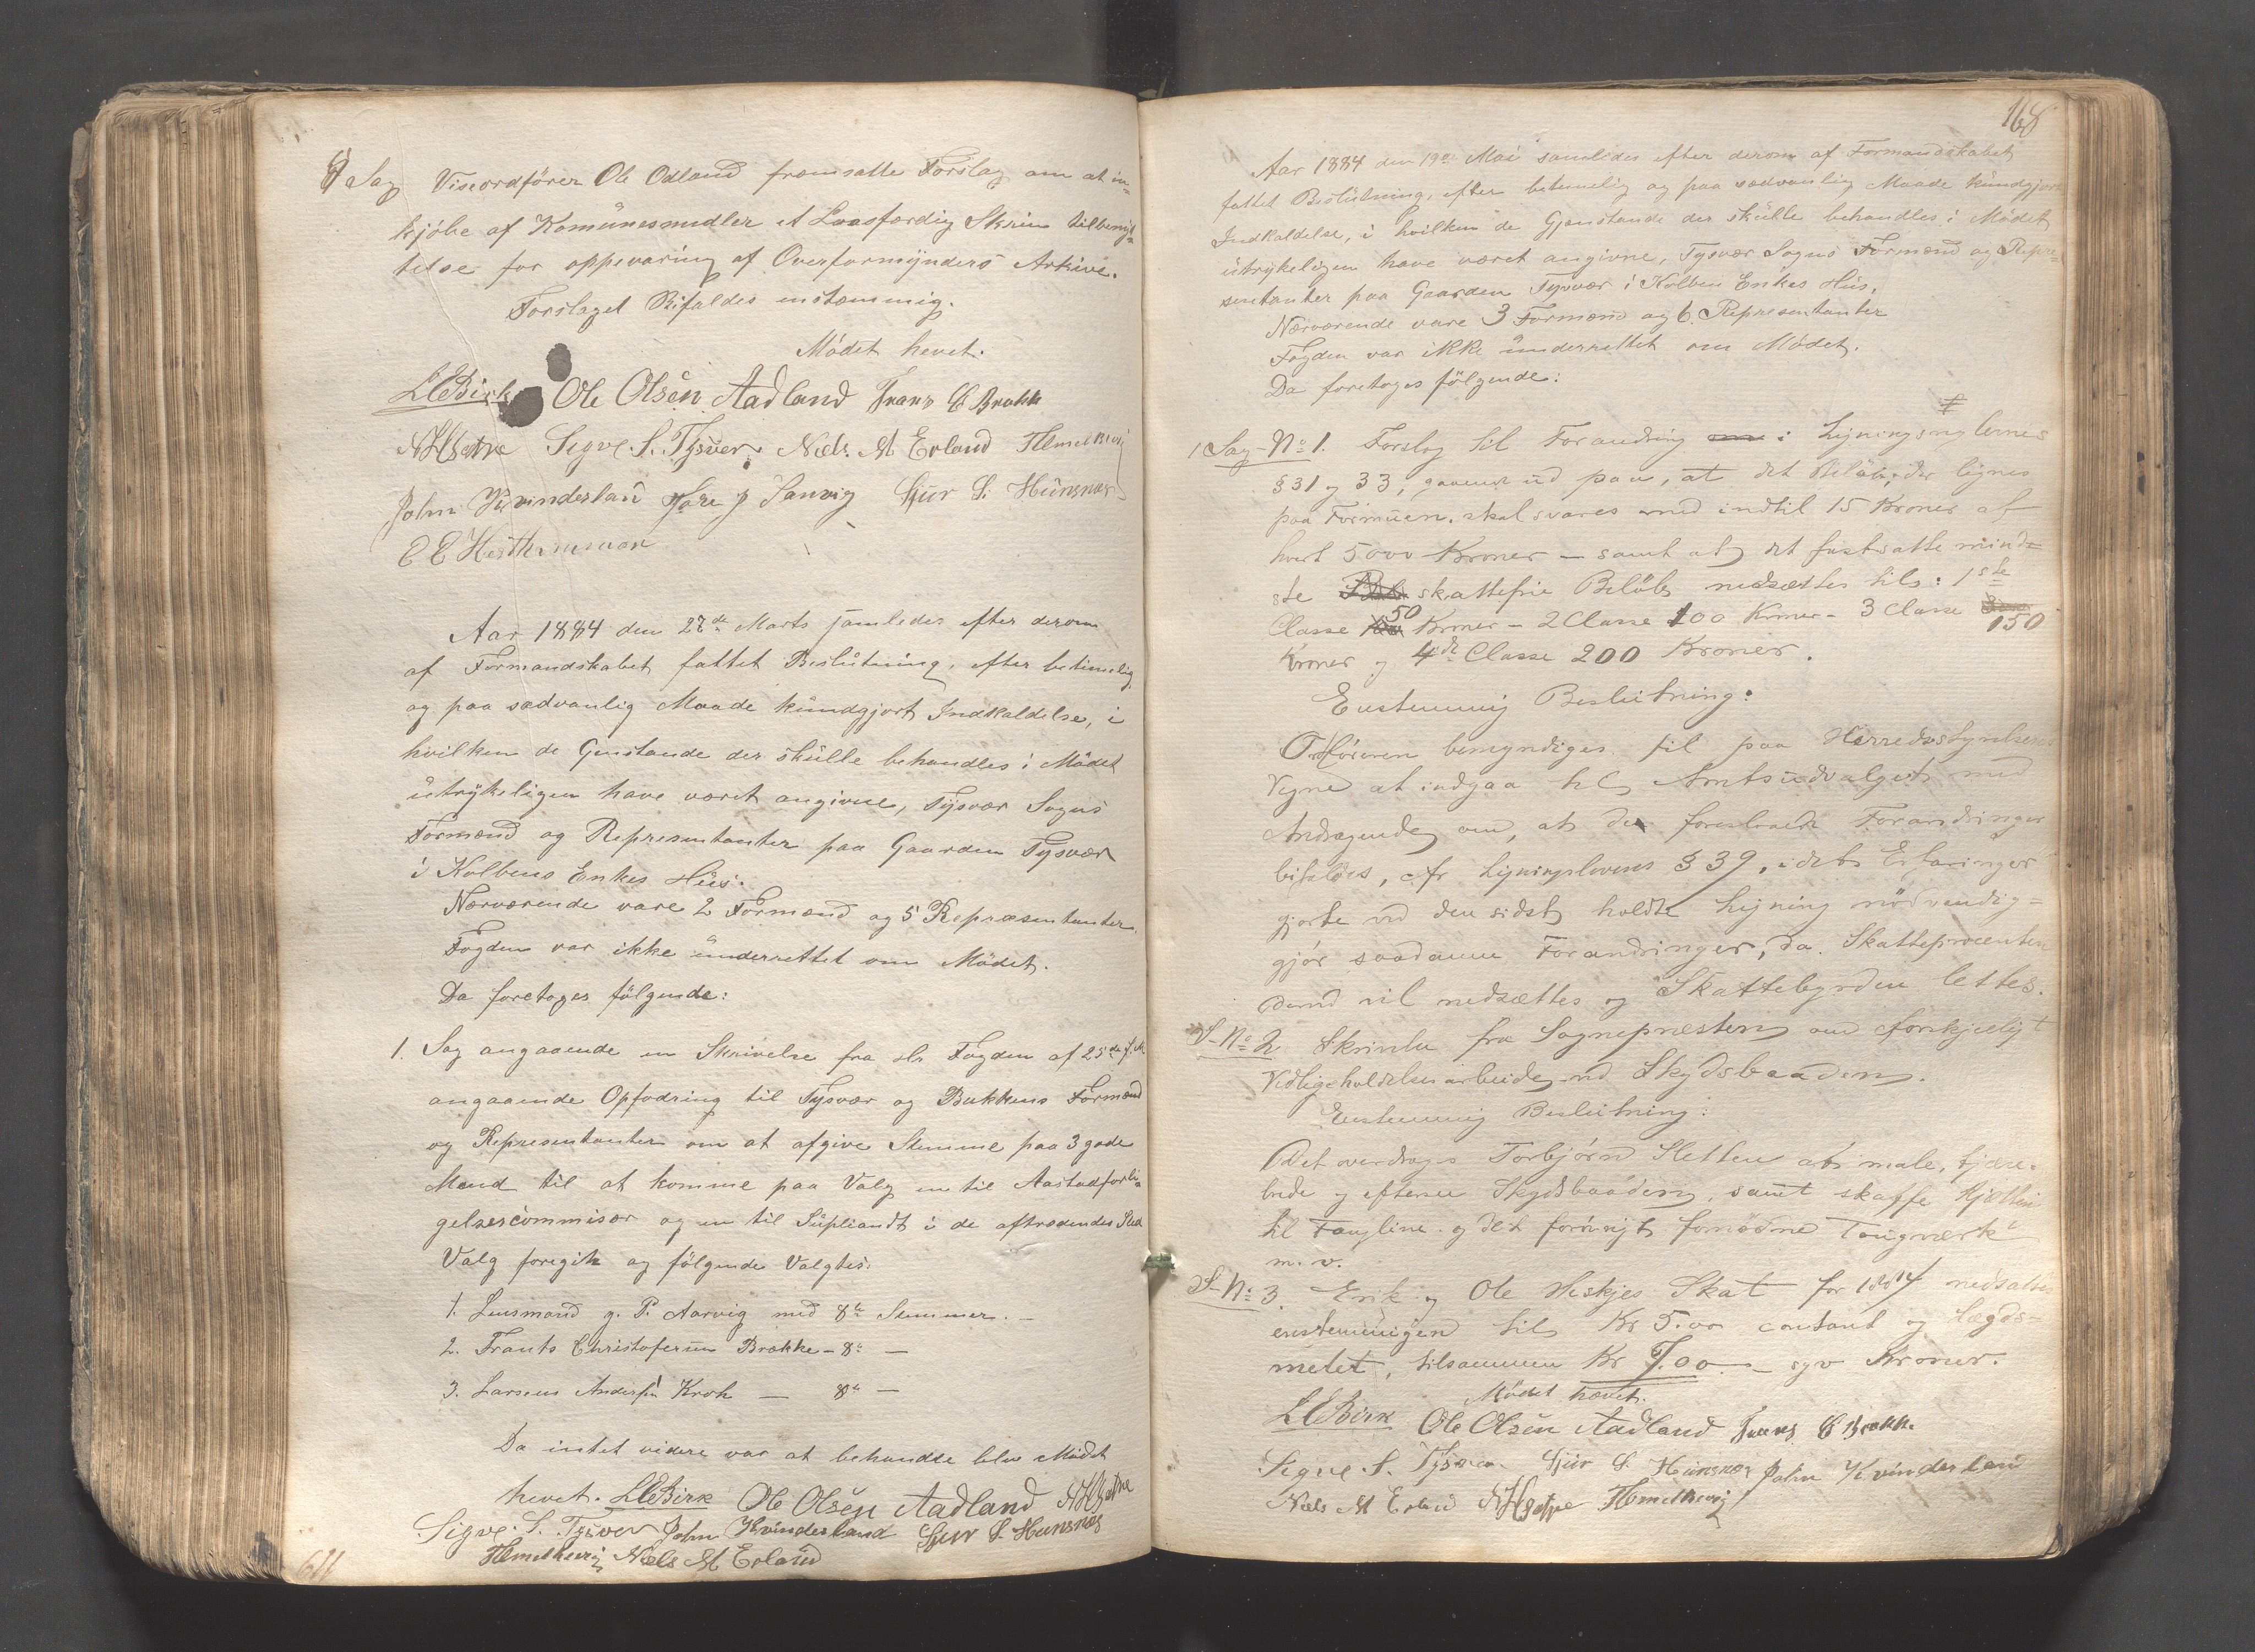 8 Sag Viseordförer Ole Odland fremsatte Forslag om at in-
kjöbe af Komünesmidler et Laasfærdig Skrin til benyt-
telse for oppevaring af Overformynders Arkive.
Forslaget Bifaldes enstemmig.
Mödet hevet.
LEBirk Ole Olsen Aadland Frans C Brakke
Sigve S. Tysver Niels M Erland
John Kvinderland Tore J Sanvig Sjur S. Hünsnæs
Aar 1884 den 27de Marts samledes efter derom
af Formandskabet fattet Beslütning, efter betimelig
og paa sædvanlig Maade kündgjort Indkaldelse, i
hvilken de Genstande der skülle behandles i Mödet
ütrykeligen have været angivne, Tysvær Sogns
Formænd og Representanter paa Gaarden Tysvær
i Kolbens Enkes Hüs.
Nærværende vare 2 Formænd og 5 Repræsentanter.
Fogden var ikke ünderrettet om Mödet.
Da foretoges fölgende:
1. Sag angaaende en Skrivelse fra Hr Fogden af 25de
angaaende Opfodring til Tysvær og Bukkens Formænd
og Representanter om at afgive Stemme paa 3 gode
Mænd til at komme paa Valg en til Aastadforli-
gelsescommisær og en til Süpliandt i de aftrædendes Sted
Valg foregik og fölgende Valgtes:
1. Lensmand g. P. Aarvig med 8te Stemmer. —
2. Frants Christofersen Brakke - 8te —
3. Larsens Andersen Kroh — 8te —
Da intet videre var at behandle blev Mödet
hevet. LEBirk Ole Olsen Aadland
Sigve S. Tysver John Kvinderland Sjur S. Hunsnæs
Niels M Erland
168
Aar 1884 den 19de Mai samledes efter derom af Formandskabet
fattet Beslütning, efter betimelig og paa sædvanlig Maade kündgjort
Indkaldelse, i hvilken de Gjenstande der skülle behandles i Mödet
ütrykeligen have været angivne, Tysvær Sogns Formænd og Repre-
sentanter paa Gaarden Tysvær i Kolben Enkes Hüs.
Nærværende vare 3 Formænd og 6 Representanter
Fogden var ikke ünderrettet om Mödet.
Da foretoges fölgende:
1 Sag No 1. Forslag til Forandring i Ligningsreglernes
§ 31 og 33, gaaende ud paa, at det Belöb, der lignes
paa Formüen, skal svares med indtil 15 Kroner af
hvert 5000 Kroner — samt at det fastsatte mind-
ste skattefrie Belöb nedsættes til: 1ste
Classe 50 Kroner - 2 Classe 100 Kroner - 3 Classe 150
Kroner og 4de Classe 200 Kroner.
Enstemmig Beslutning:
Ordföreren bemyndiges til paa Herredsstyrelsens
Vegne at indgaa til Amtsudvalget med
Andragende om, at de foreslaaede Forandringer
bifaldes, cfr Ligningslovens § 39, idet Erfaringer
gjorte ved den sidst holdte Ligning nödvendig-
gjör saadanne Forandringer, da Skatteprocenten
derved vil nedsættes og Skattebyrden lettes.
S. No 2 Skrivelse fra Sognepræsten om forskjelligt
Vedligeholdelsesarbeide ved Skydsbaaden.
Enstemmig Beslutning:
Det overdrages Torbjörn Sletten at male, tjære-
brede og efterse Skydsbaaden, samt skaffe
til Fangline og det forövrigt fornödne Tougværk
m. v.
S. No 3. Erik og Ole Heskjes Skat for 1884 nedsattes
enstemmigen til Kr 5.00 contant og Lægds-
melet, tilsammen Kr 7.00 — syv Kroner.
Mödet hævet.
LEBirk Ole Olsen Aadland Frans C Brakke
Sigve S. Tysvær Sjur S. Hünsnæs John Kvinderland
Niels M Erland